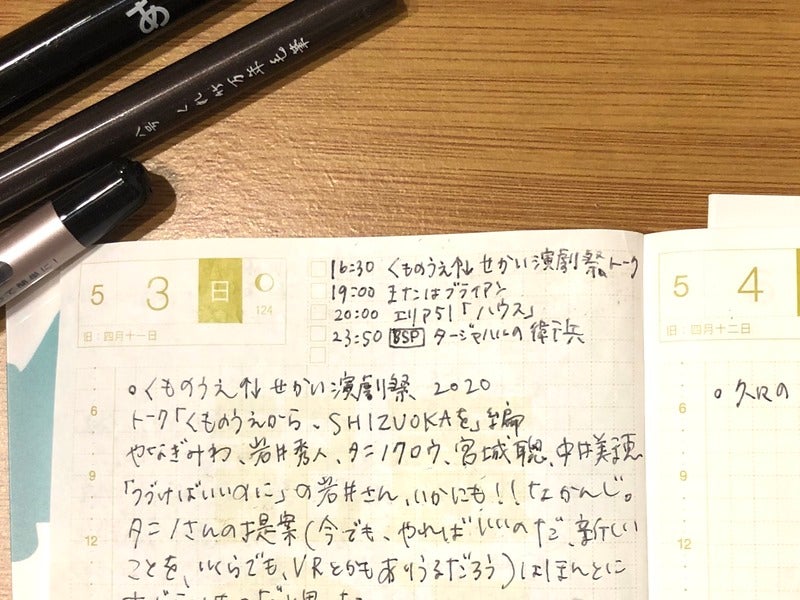 あ
くれ竹万年毛筆
5 3 日
124
旧:四月十一日
16:30 くものうえ⇅せかい演劇祭トーク
19:00 またはブライアン
20:00 エリア51「ハウス」
23:50 BSP タージマハルの衛兵
5 4
旧:四月十二日
6
9
12
○くものうえ⇅せかい演劇祭 2020
トーク「くものうえから、SHIZUOKAを」編
やなぎみわ、岩井秀人、タニノクロウ、宮城聰、中井美穂
「つづけばいいのに」の岩井さん、いかにも!!なかんじ。
タニノさんの提案(今でも、やればいいのだ、新しい
ことを、いくらでも、VRとかもありうるだろう)はほんとに
6
9
12
○久口の